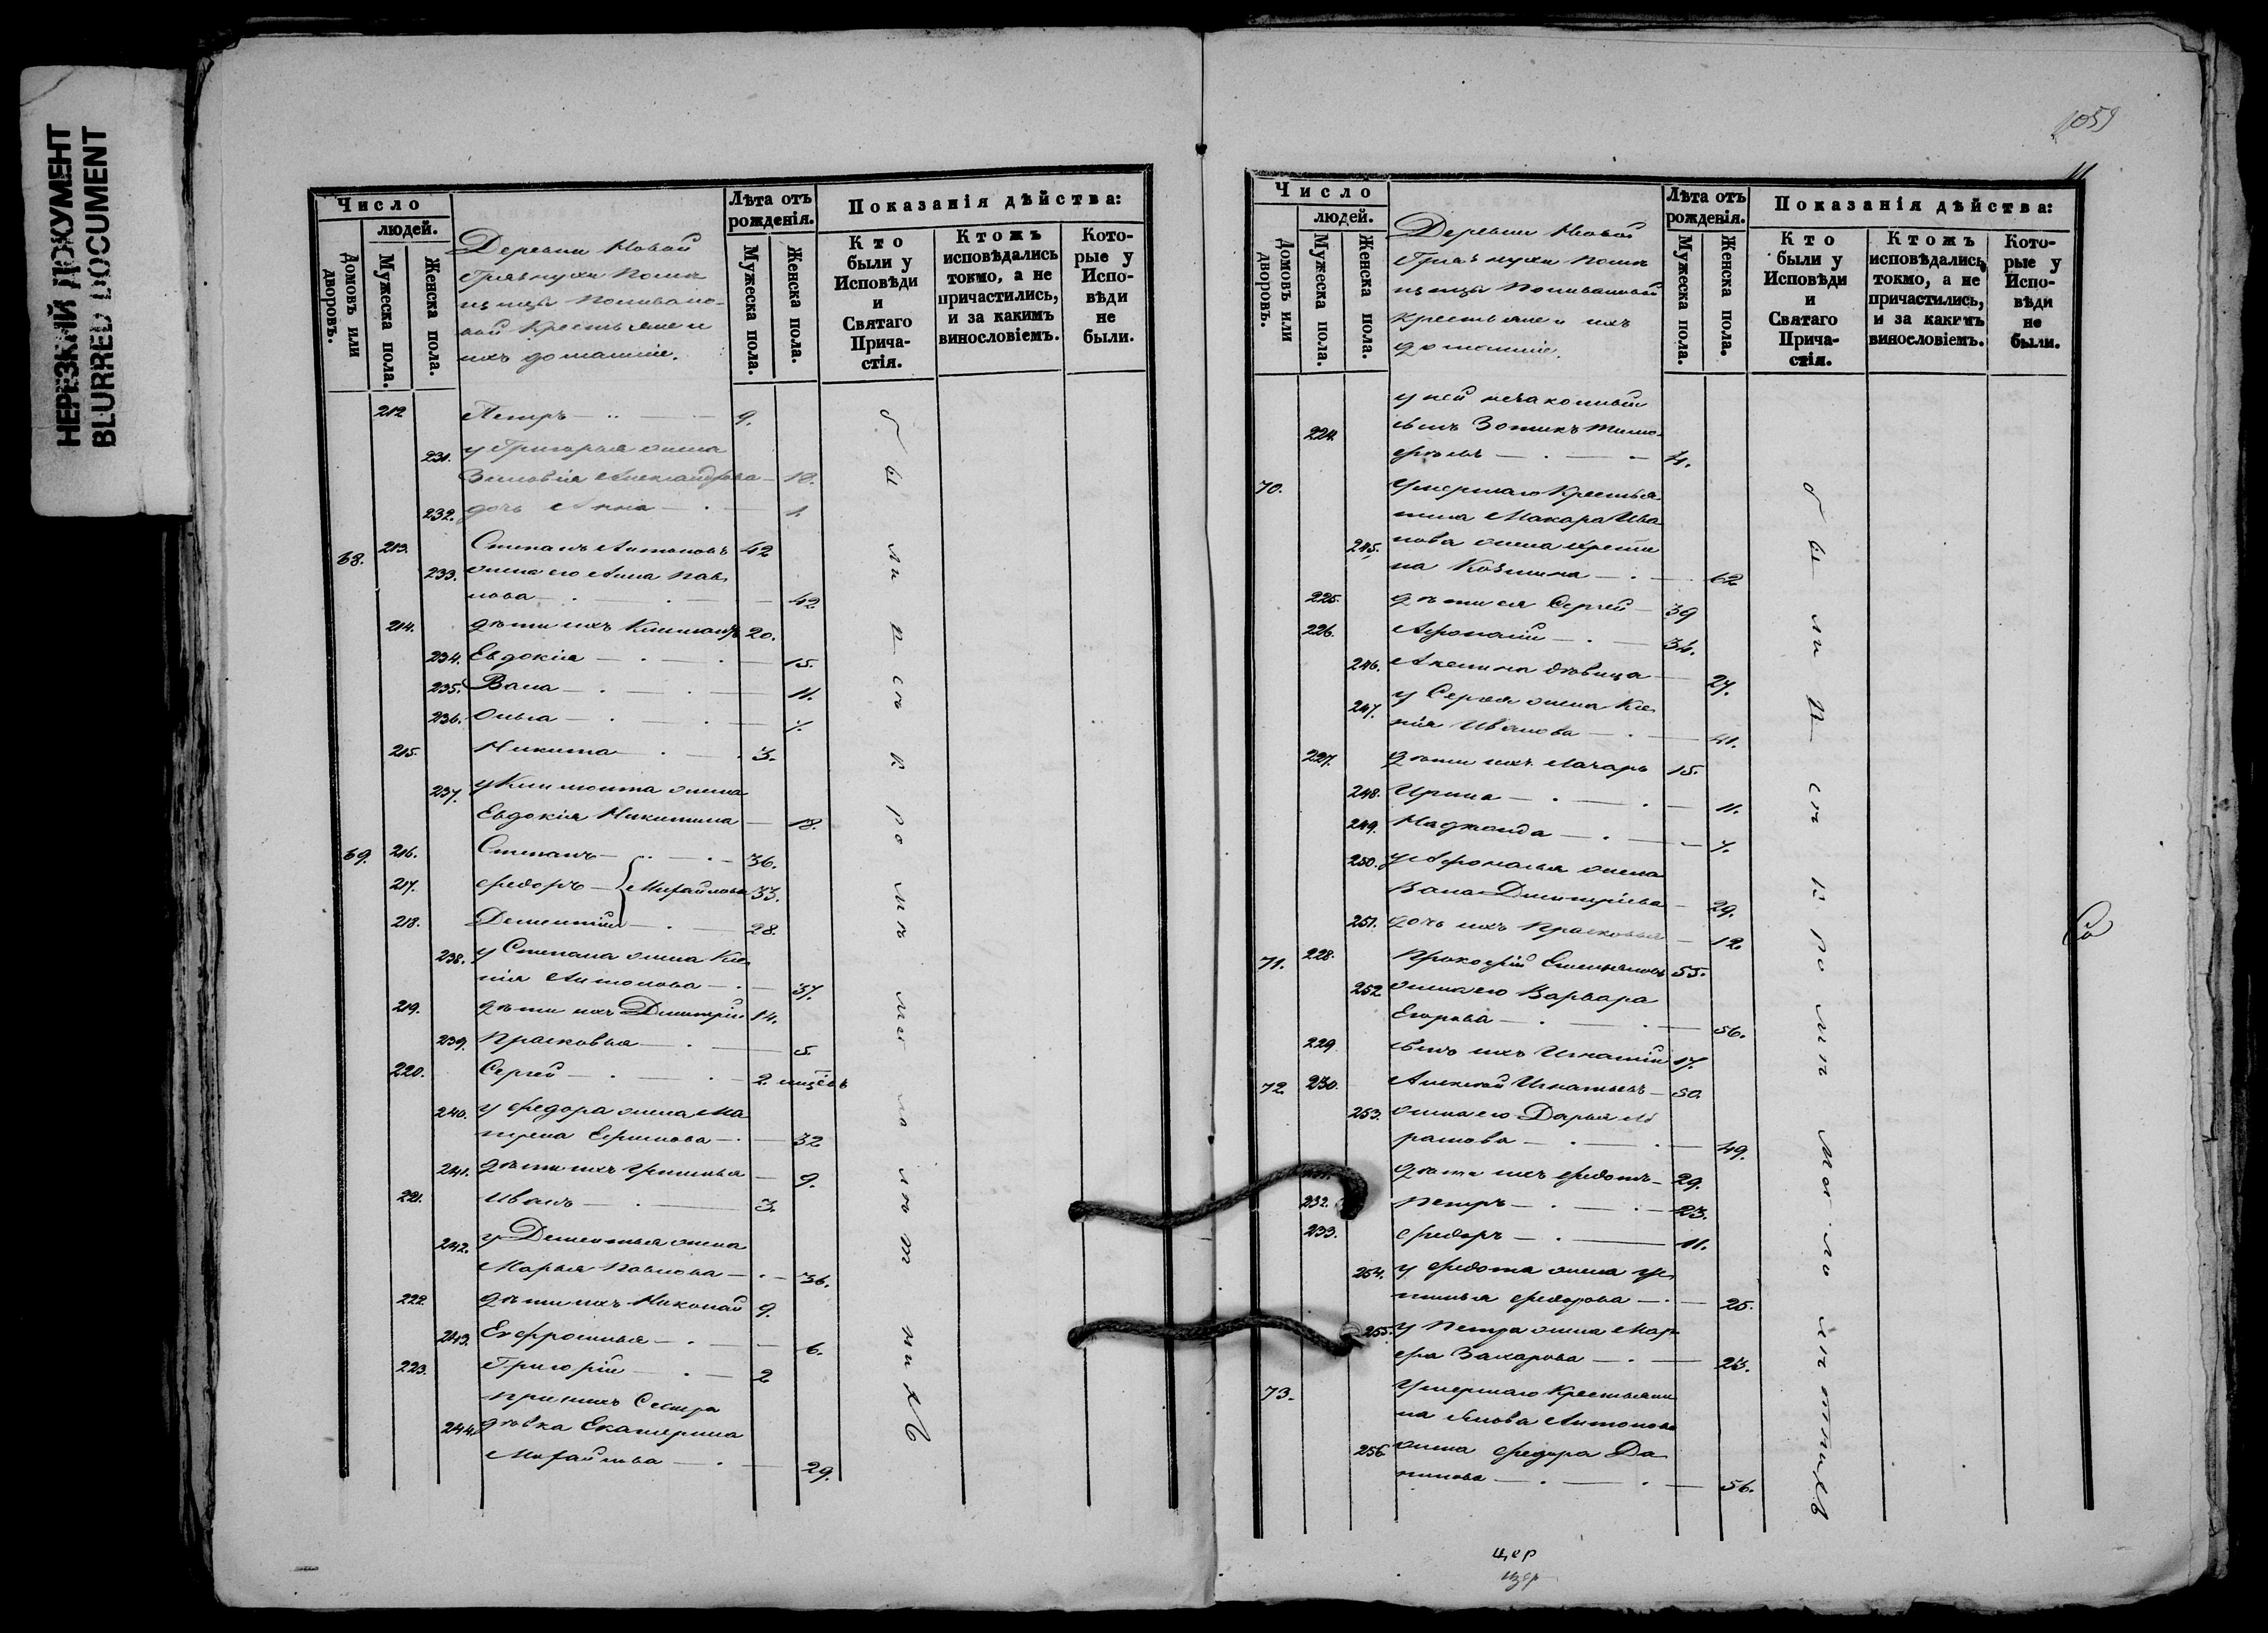 НЕРЕЗКИЙ ДОКУМЕНТ
BLURRED DOCUMENT
Число
людей.
Домовъ или дворовъ.
Мужеска пола.
Женска пола.
Деревни Новой
Грязнухи поме
щицы Поливано-
вой Крестьяне и
ихъ домашніе.
Лѣта отъ рожденія.
Мужеска пола.
Женска пола.
Показанія дѣйства:
Кто были у Исповѣди и Святаго Прича-стія.
Ктожъ исповѣдались токмо, а не причастились, и за какимъ винословіемъ.
Кото-рые у Испо-вѣди не были.
212 Петръ 9.
231. у Григорья жена
Зиновія Александрова 18.
232. дочь Анна 1.
68. 213. Степанъ Антоновъ 42
233. жена его Анна Пав
лова 42
214. дѣти ихъ Климонтъ 20.
234. Евдокія 15.
235. Васса 11.
236. Ольга 7.
215. Никита 3.
237. у Климонта жена
Евдокія Никитина 18.
69. 216. Степанъ 36.
217. Федоръ Михайловы 33.
218. Дементій 28.
238. у Степана жена Ксе
нія Антонова 37.
219. дѣти ихъ Димитрій 14.
239. Прасковья 5.
220. Сергей 2
240. у Федора жена Ма
трена Ефимова 32
241. дѣти ихъ Устинья 9.
221. Иванъ 3.
242. у Дементья жена
Марья Павлова 36.
222. дѣти ихъ Николай 9.
243. Евфросинья 6.
223. Григорій 2
при нихъ Сестра
244. дѣвка Екатерина
Михайлова 29.
были
1059
Число
людей.
Домовъ или дворовъ.
Мужеска пола.
Женска пола.
Деревни Новой
Грязнухи поме
щицы Поливановой
крестьяне и ихъ
домашніе.
Лѣта отъ рожденія.
Мужеска пола.
Женска пола.
Показанія дѣйства:
Кто были у Исповѣди и Святаго Прича-стія.
Ктожъ исповѣдались токмо, а не причастились, и за какимъ винословіемъ.
Кото-рые у Испо-вѣди не были.
у ней незаконный
224. сынъ Зотикъ Тимо-
феевъ 4.
70. Умершаго Крестья
нина Макара Ива
245. нова жена Христи
на Козмина 62
225. дѣти ея Сергей 39
226. Афонасій 34.
246. Акелина дѣвица 27.
247. у Сергея жена Ксе
нія Иванова 41.
227. дѣти ихъ Лазарь 15.
248. Ирина 11.
249. Надежда 7.
250. у Афонасья жена
Васса Димитріева 29.
251. дочь ихъ Прасковья 12.
71. 228. Прокофій Емельяновъ 55.
252 жена его Варвара
Егорова 56.
229 сынъ ихъ Игнатій 17.
72 230. Алексѣй Игнатьевъ 50.
253. жена его Дарья
49.
дѣти ихъ Федотъ 29.
232. Петръ 23.
233. Федоръ 11.
254. у Федота жена Ус
тинья Федорова 25.
255. у Петра жена Мар
фа Захарова 23.
73. Умершаго Крестьяни
на Якова Антонова
256 жена Федора Да
нилова 56.
были
Со
цер
цер